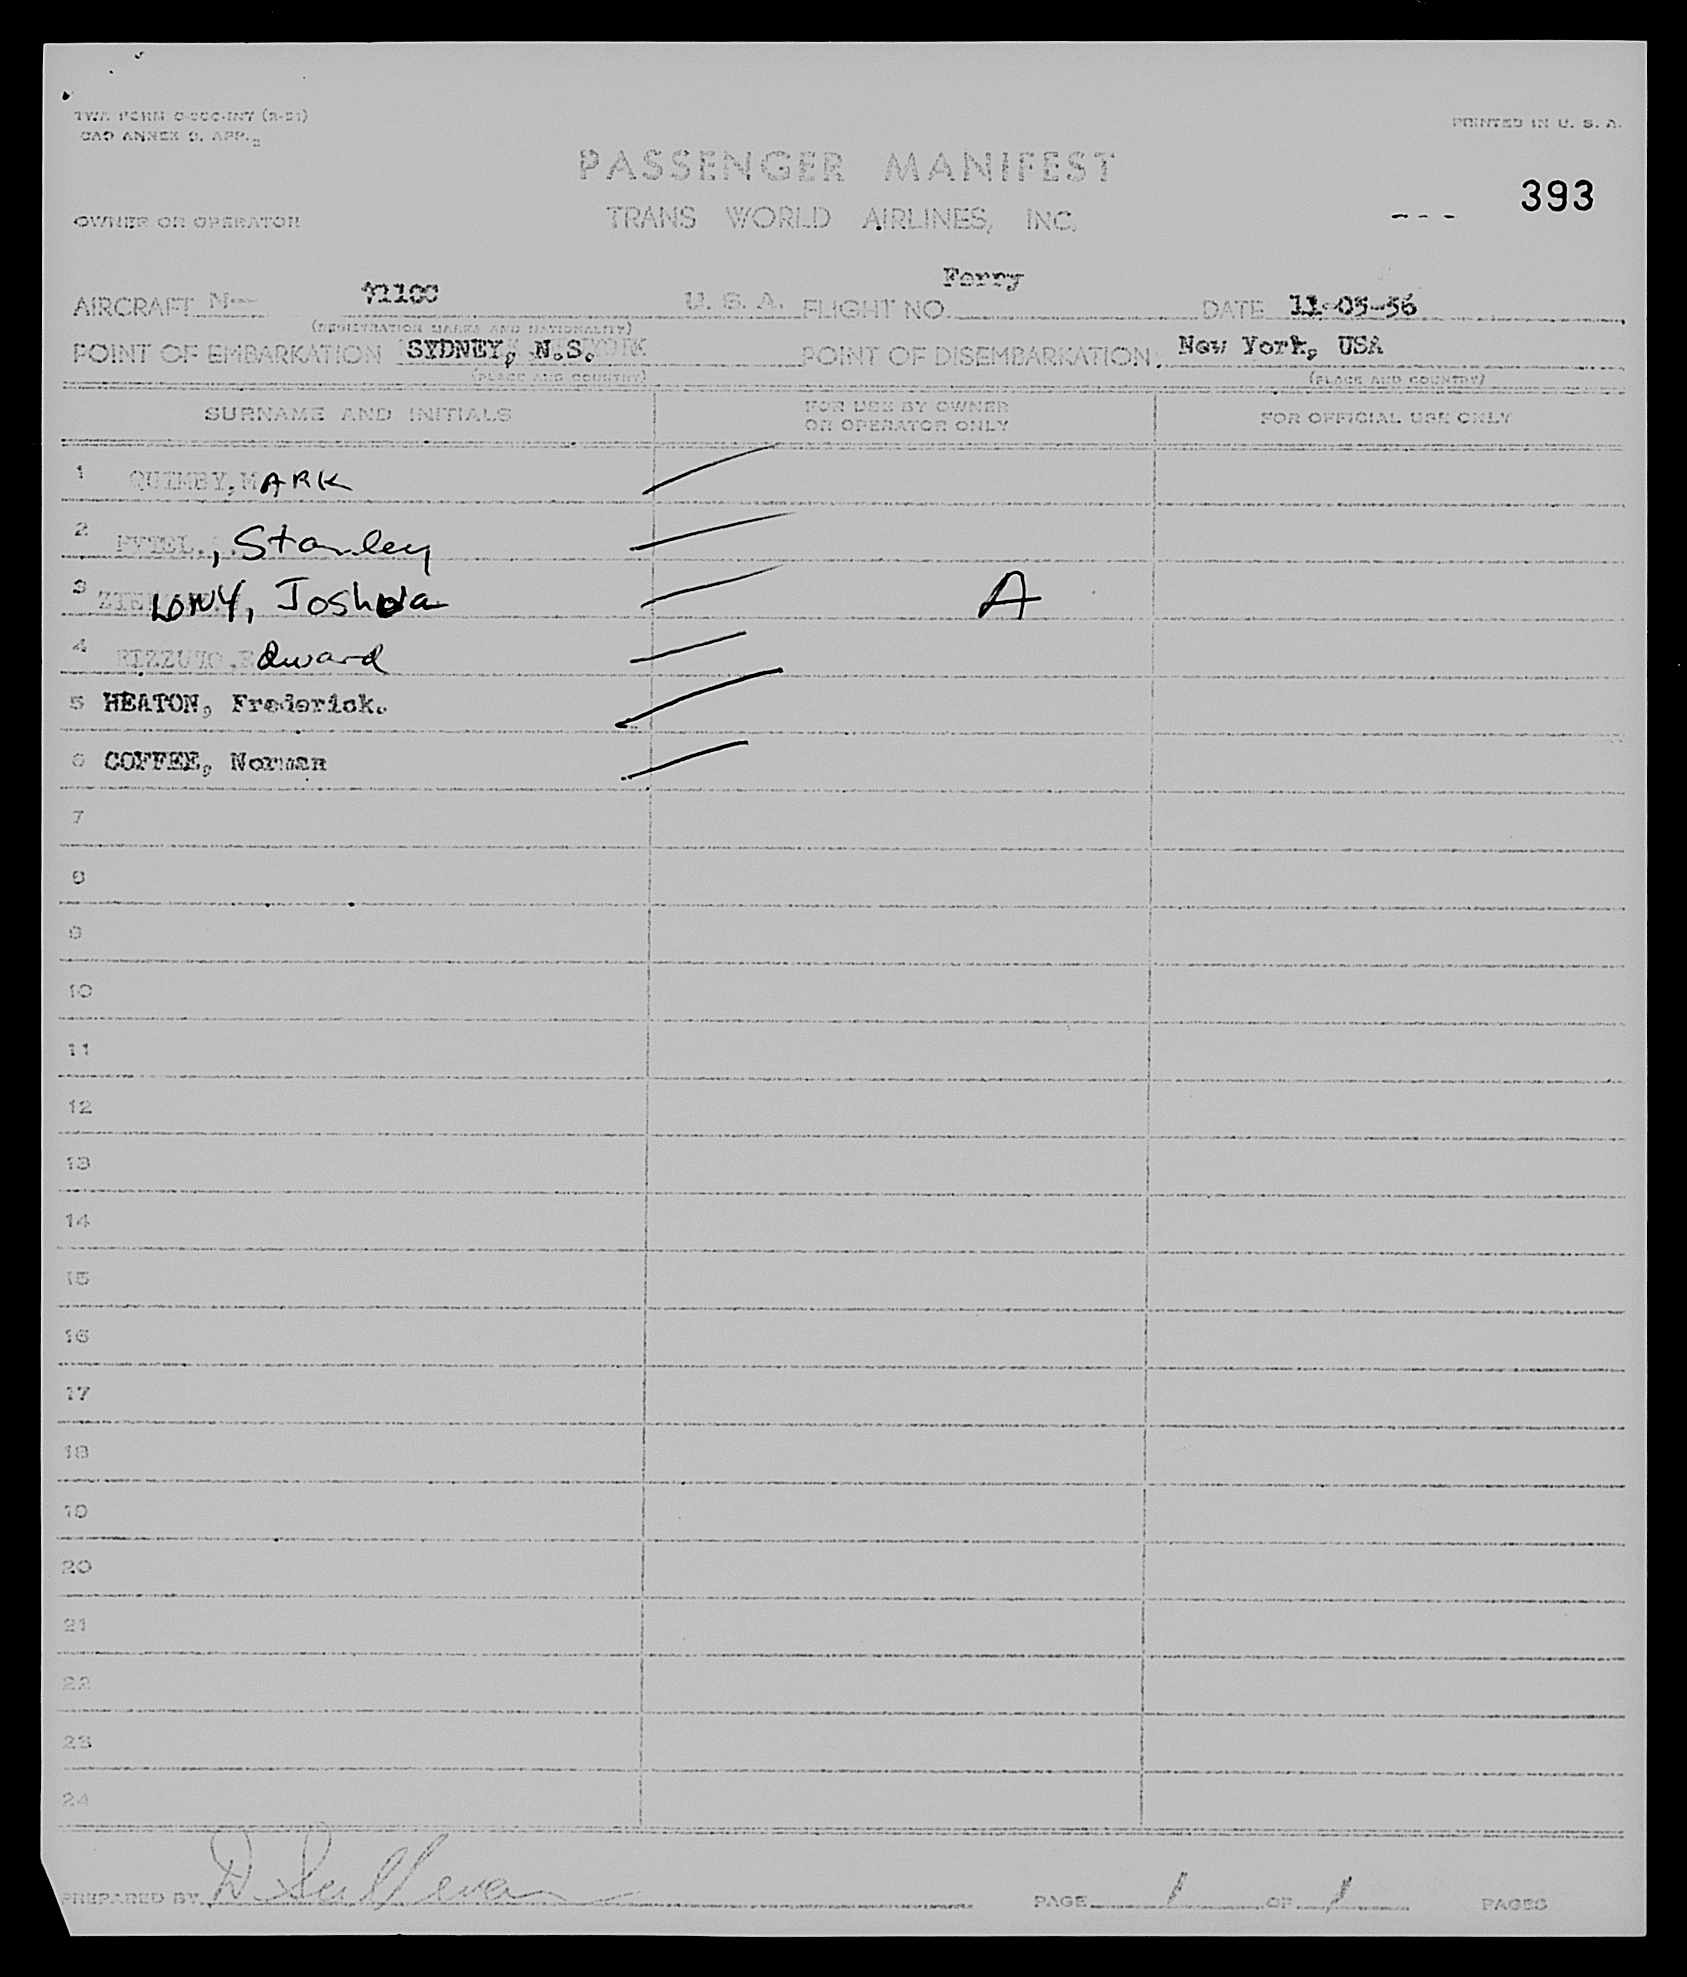 PRINTED IN U. S. A.
PASSENGER MANIFEST
393
OWNER OR OPERATOR
TRANS WORLD AIRLINES, INC.
---
Ferry
AIRCRAFT N-- U. S. A. FLIGHT NO. DATE 11-05-56
(REGISTRATION MARKS AND NATIONALITY)
POINT OF EMBARKATION SYDNEY, N.S. POINT OF DISEMBARKATION New York, USA
(PLACE AND COUNTRY) (PLACE AND COUNTRY)
SURNAME AND INITIALS FOR USE BY OWNER OR OPERATOR ONLY FOR OFFICIAL USE ONLY
1 QUIMBY, MARK
2 PYTEL, Stanley
3 LOWY, Joshua A
4 RIZZUTO, Edward
5 HEATON, Frederick.
6 COFFEE, Norman
7
8
9
10
11
12
13
14
15
16
17
18
19
20
21
22
23
24
PREPARED BY D. Sullivan PAGE 1 OF 1 PAGES